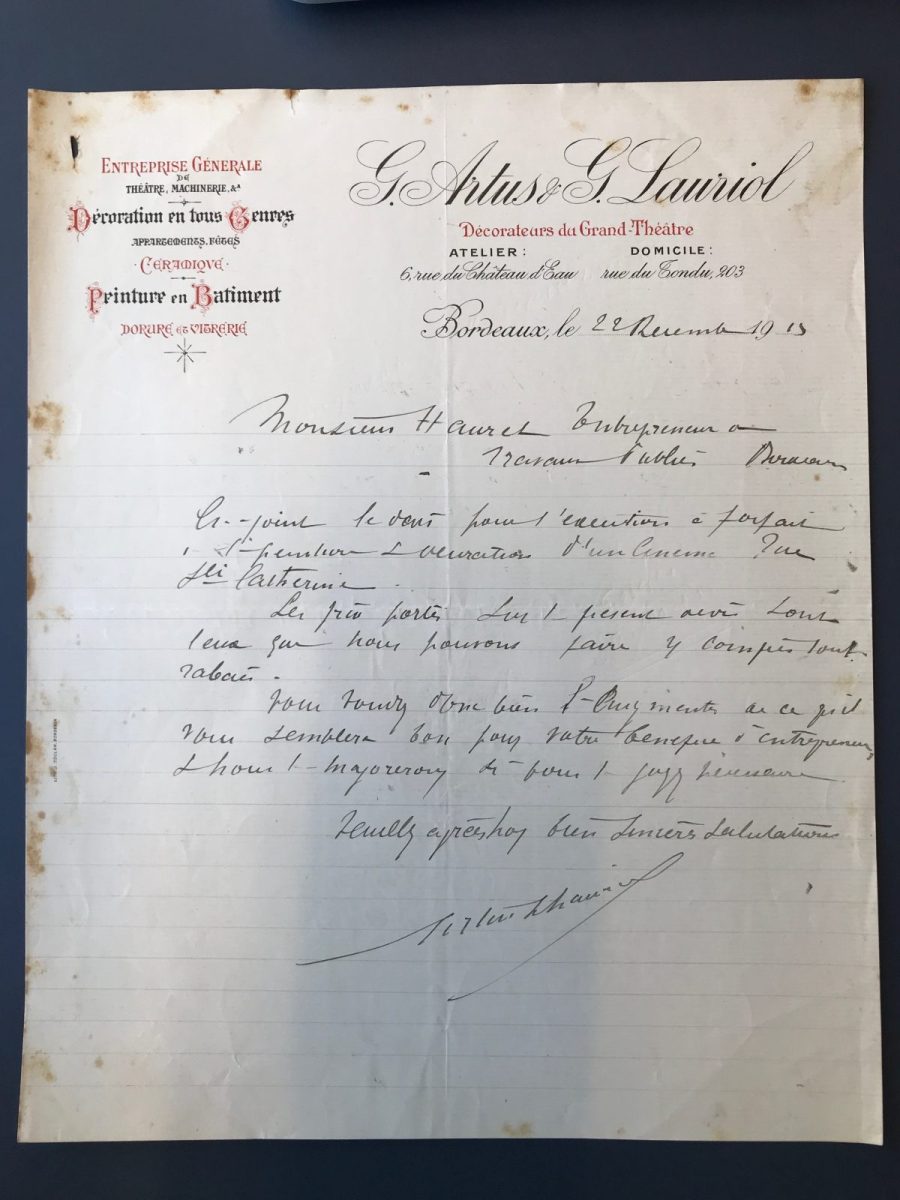 ENTREPRISE GÉNÉRALE
DE
THÉÂTRE, MACHINERIE, &ª
Décoration en tous Genres
APPARTEMENTS, FÊTES
CÉRAMIQUE
Peinture en Batiment
DORURE ET VITRERIE
G. Artus & G. Lauriol
Décorateurs du Grand-Théâtre
ATELIER: DOMICILE:
6, rue du Château d'Eau rue du Tondu, 203
Bordeaux, le 22 Decemb 1913
Monsieur Hauret Entrepreneur
Travaux Publics Bordeaux
Ci-joint le devis pour l'execution à forfait
d'un Cinema Rue
Ste Catherine.
Les prix portés sur le present devis sont
ceux que nous pouvons faire y compris tout
rabais.
Vous voudrez donc bien l'augmenter de ce qu'il
vous semblera bon pour votre benefice d'entrepreneur
& nous le majorerons si vous le jugez necessaire
Veuillez agréer nos bien sincères salutations
Artus & Lauriol